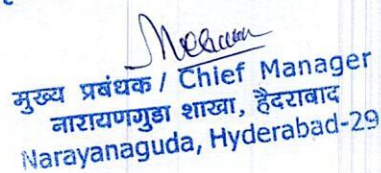 मुख्य प्रबंधक / Chief Manager
नारायणगुडा शाखा, हैदराबाद
Narayanaguda, Hyderabad-29